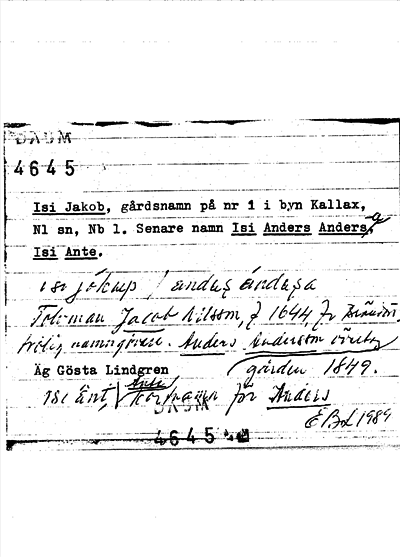 DAUM
4645
Isi Jakob, gårdsnamn på nr 1 i byn Kallax,
Nl sn, Nb l. Senare namn Isi Anders Andersa,
Isi Ante.
ɩsɩ jókup / andaṣ ándaṣa
Tolvman Jacob Nilsson, f 1644, är
trolig namngivare. Anders Andersson övertog
Äg Gösta Lindgren
gården 1849.
ɩsɩ änt, Ante kortnamn för Anders
EBL 1989
DAUM
4645